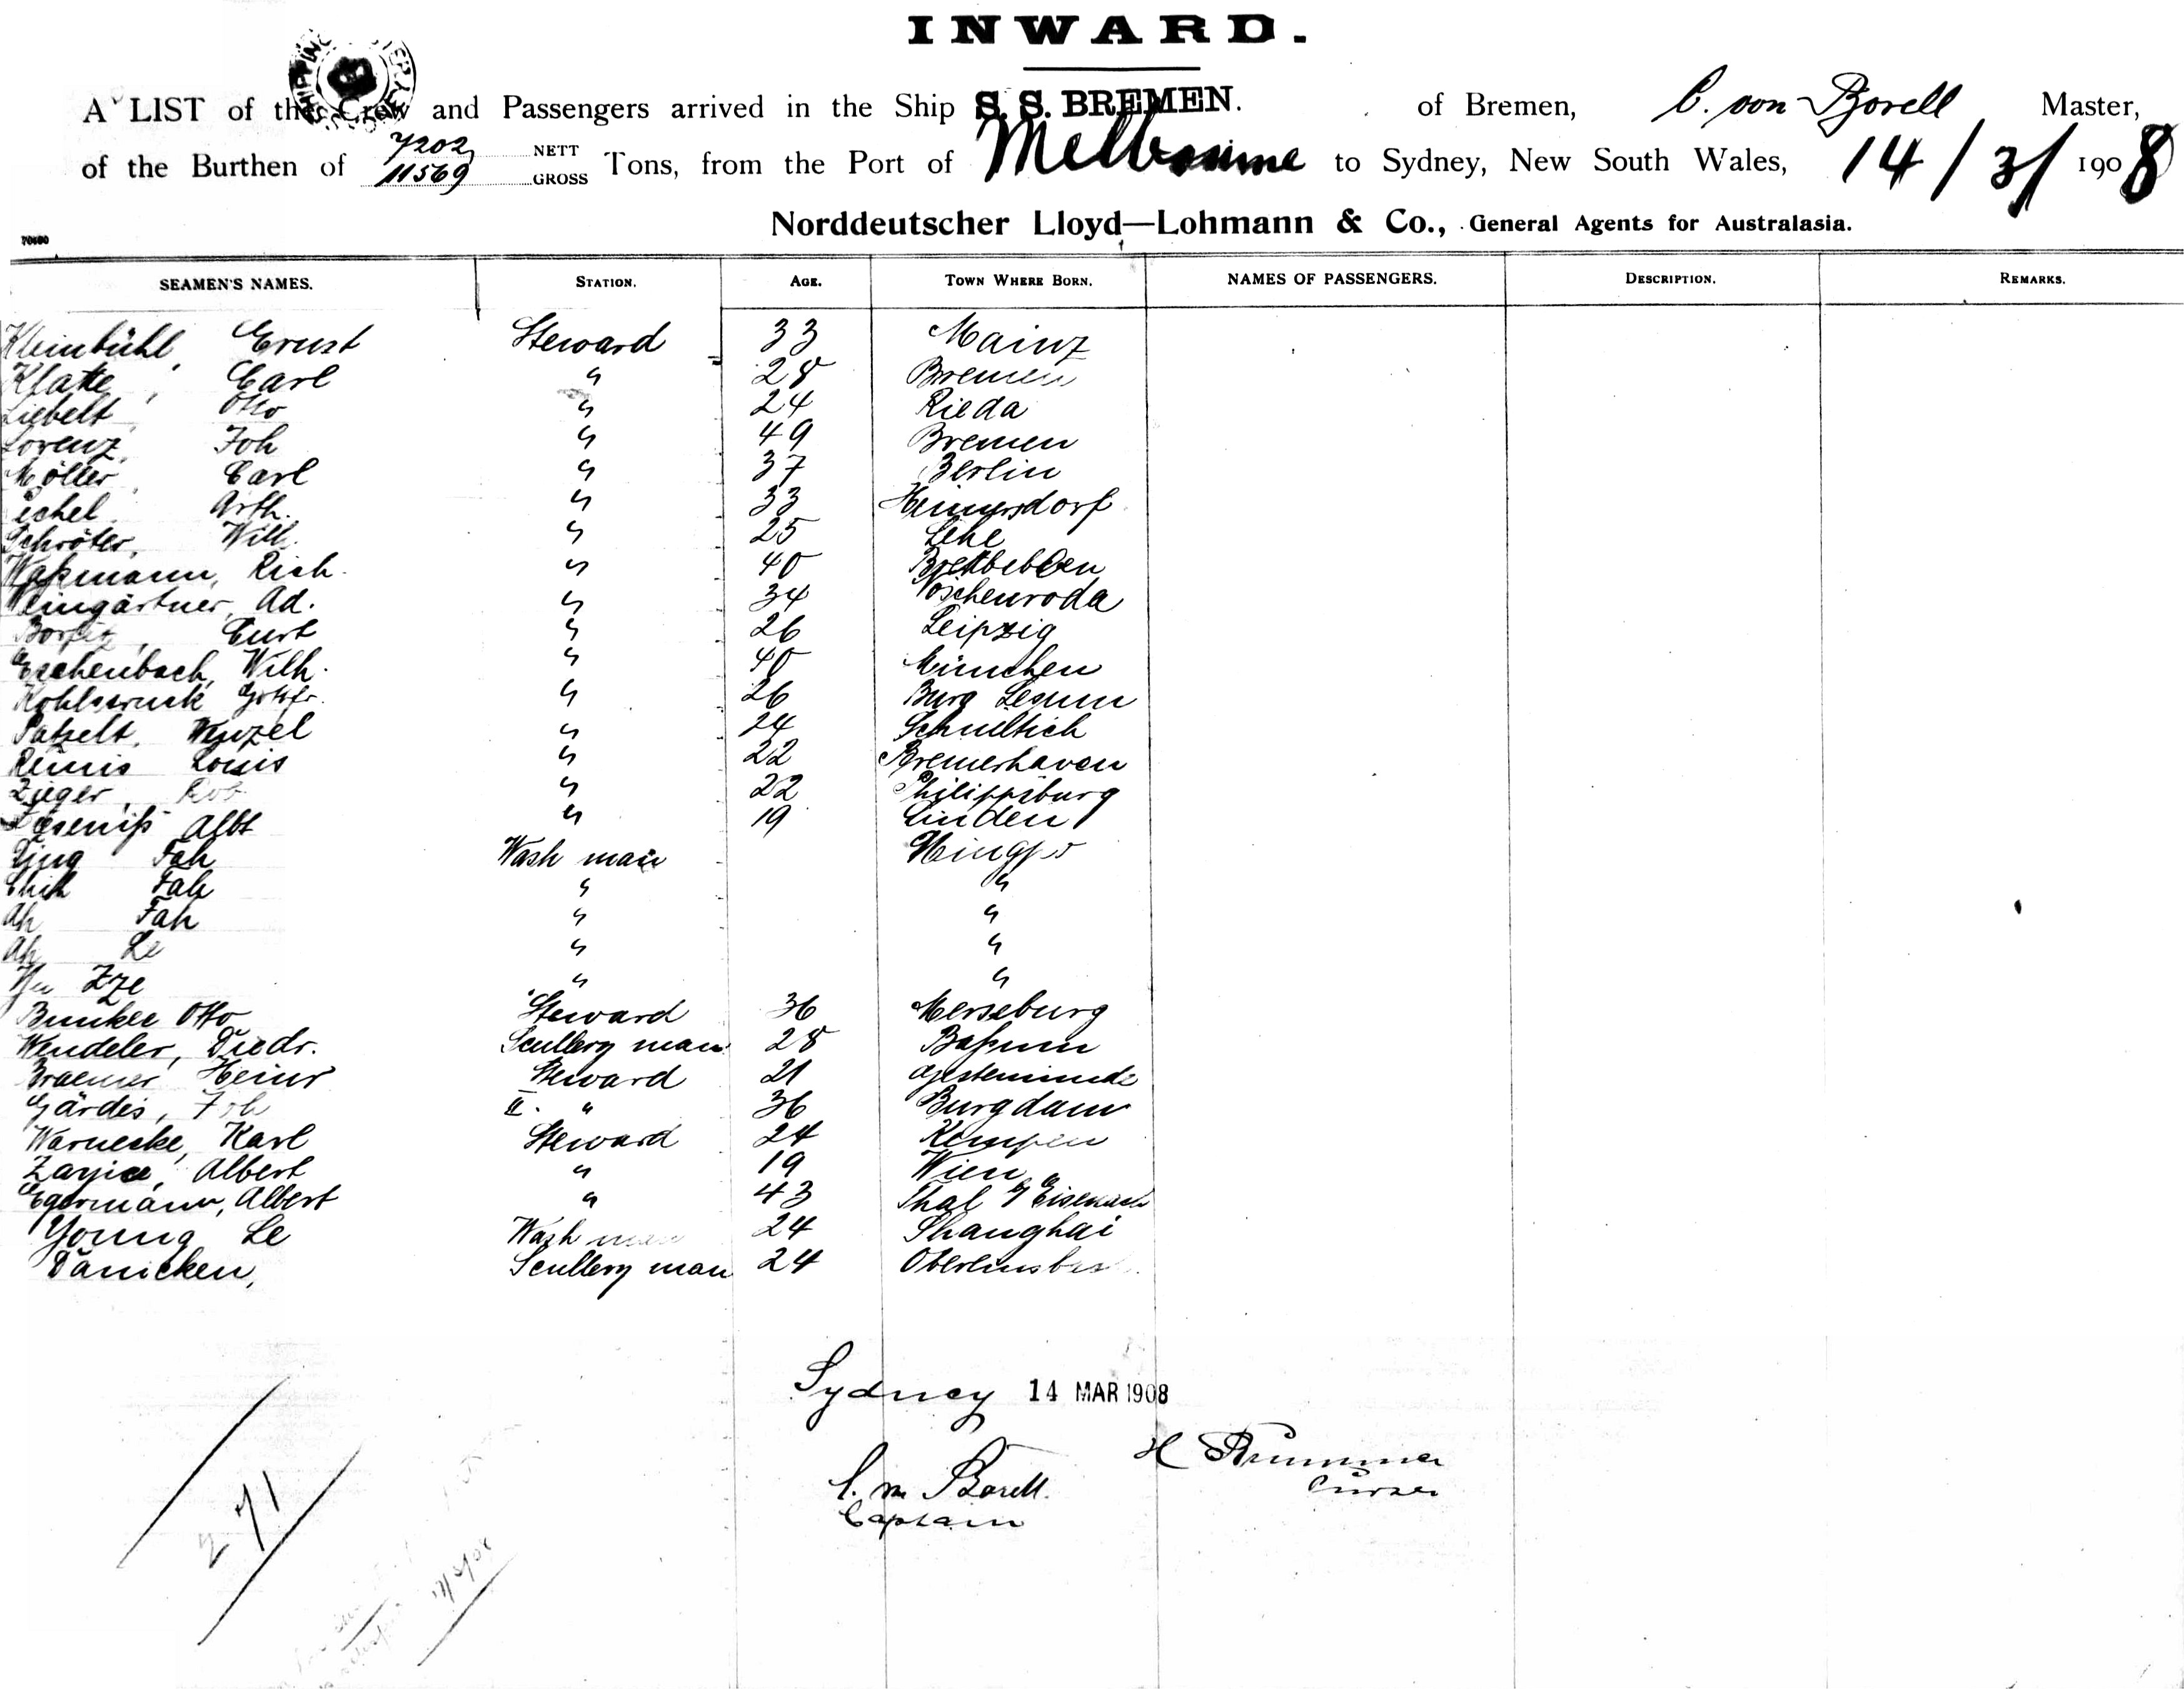 INWARD.
A LIST of the Crew and Passengers arrived in the Ship S. S. BREMEN. of Bremen, C. von Borell Master,
of the Burthen of 7202 NETT 11569 GROSS Tons, from the Port of Melbourne to Sydney, New South Wales, 14/3/1908
Norddeutscher Lloyd—Lohmann & Co., General Agents for Australasia.
SEAMEN'S NAMES. STATION. AGE. TOWN WHERE BORN. NAMES OF PASSENGERS. DESCRIPTION. REMARKS.
Kleinbühl, Ernst Steward 33 Mainz
Klatte, Carl " 28 Bremen
Liebelt, Otto " 24 Rieda
Lorenz, Joh " 49 Bremen
Möller, Carl " 37 Berlin
Arth. " 33
Schröter, Will. " 25 Lehe
Waßmann, Rich. " 40
Weingärtner, Ad. " 34
Curt " 26 Leipzig
Eschenbach, Wilh. " 40 München
" 26 Burg Lesum
Patzelt, Wenzel " 24
Louis " 22 Bremerhaven
Zieger, Rob " 22 Philippsburg
Albt " 19 Linden
Fah Wash man
Fah " "
Ah Fah " "
Ah Le " "
" "
Otto Steward 36 Merseburg
Wendeler, Diedr. Scullery man 28 Baßum
Braemer Heinr Steward 21 Geestemünde
Gärdes, Joh II. " 36 Burgdamm
Warnecke, Karl Steward 24 Kempen
Albert " 19 Wien
Egermann, Albert " 43 Thal b/ Eisenach
Young Le Wash man 24 Shanghai
Dänicken, Scullery man 24
Sydney 14 MAR 1908
C. von Borell. H
Captain Purser
271